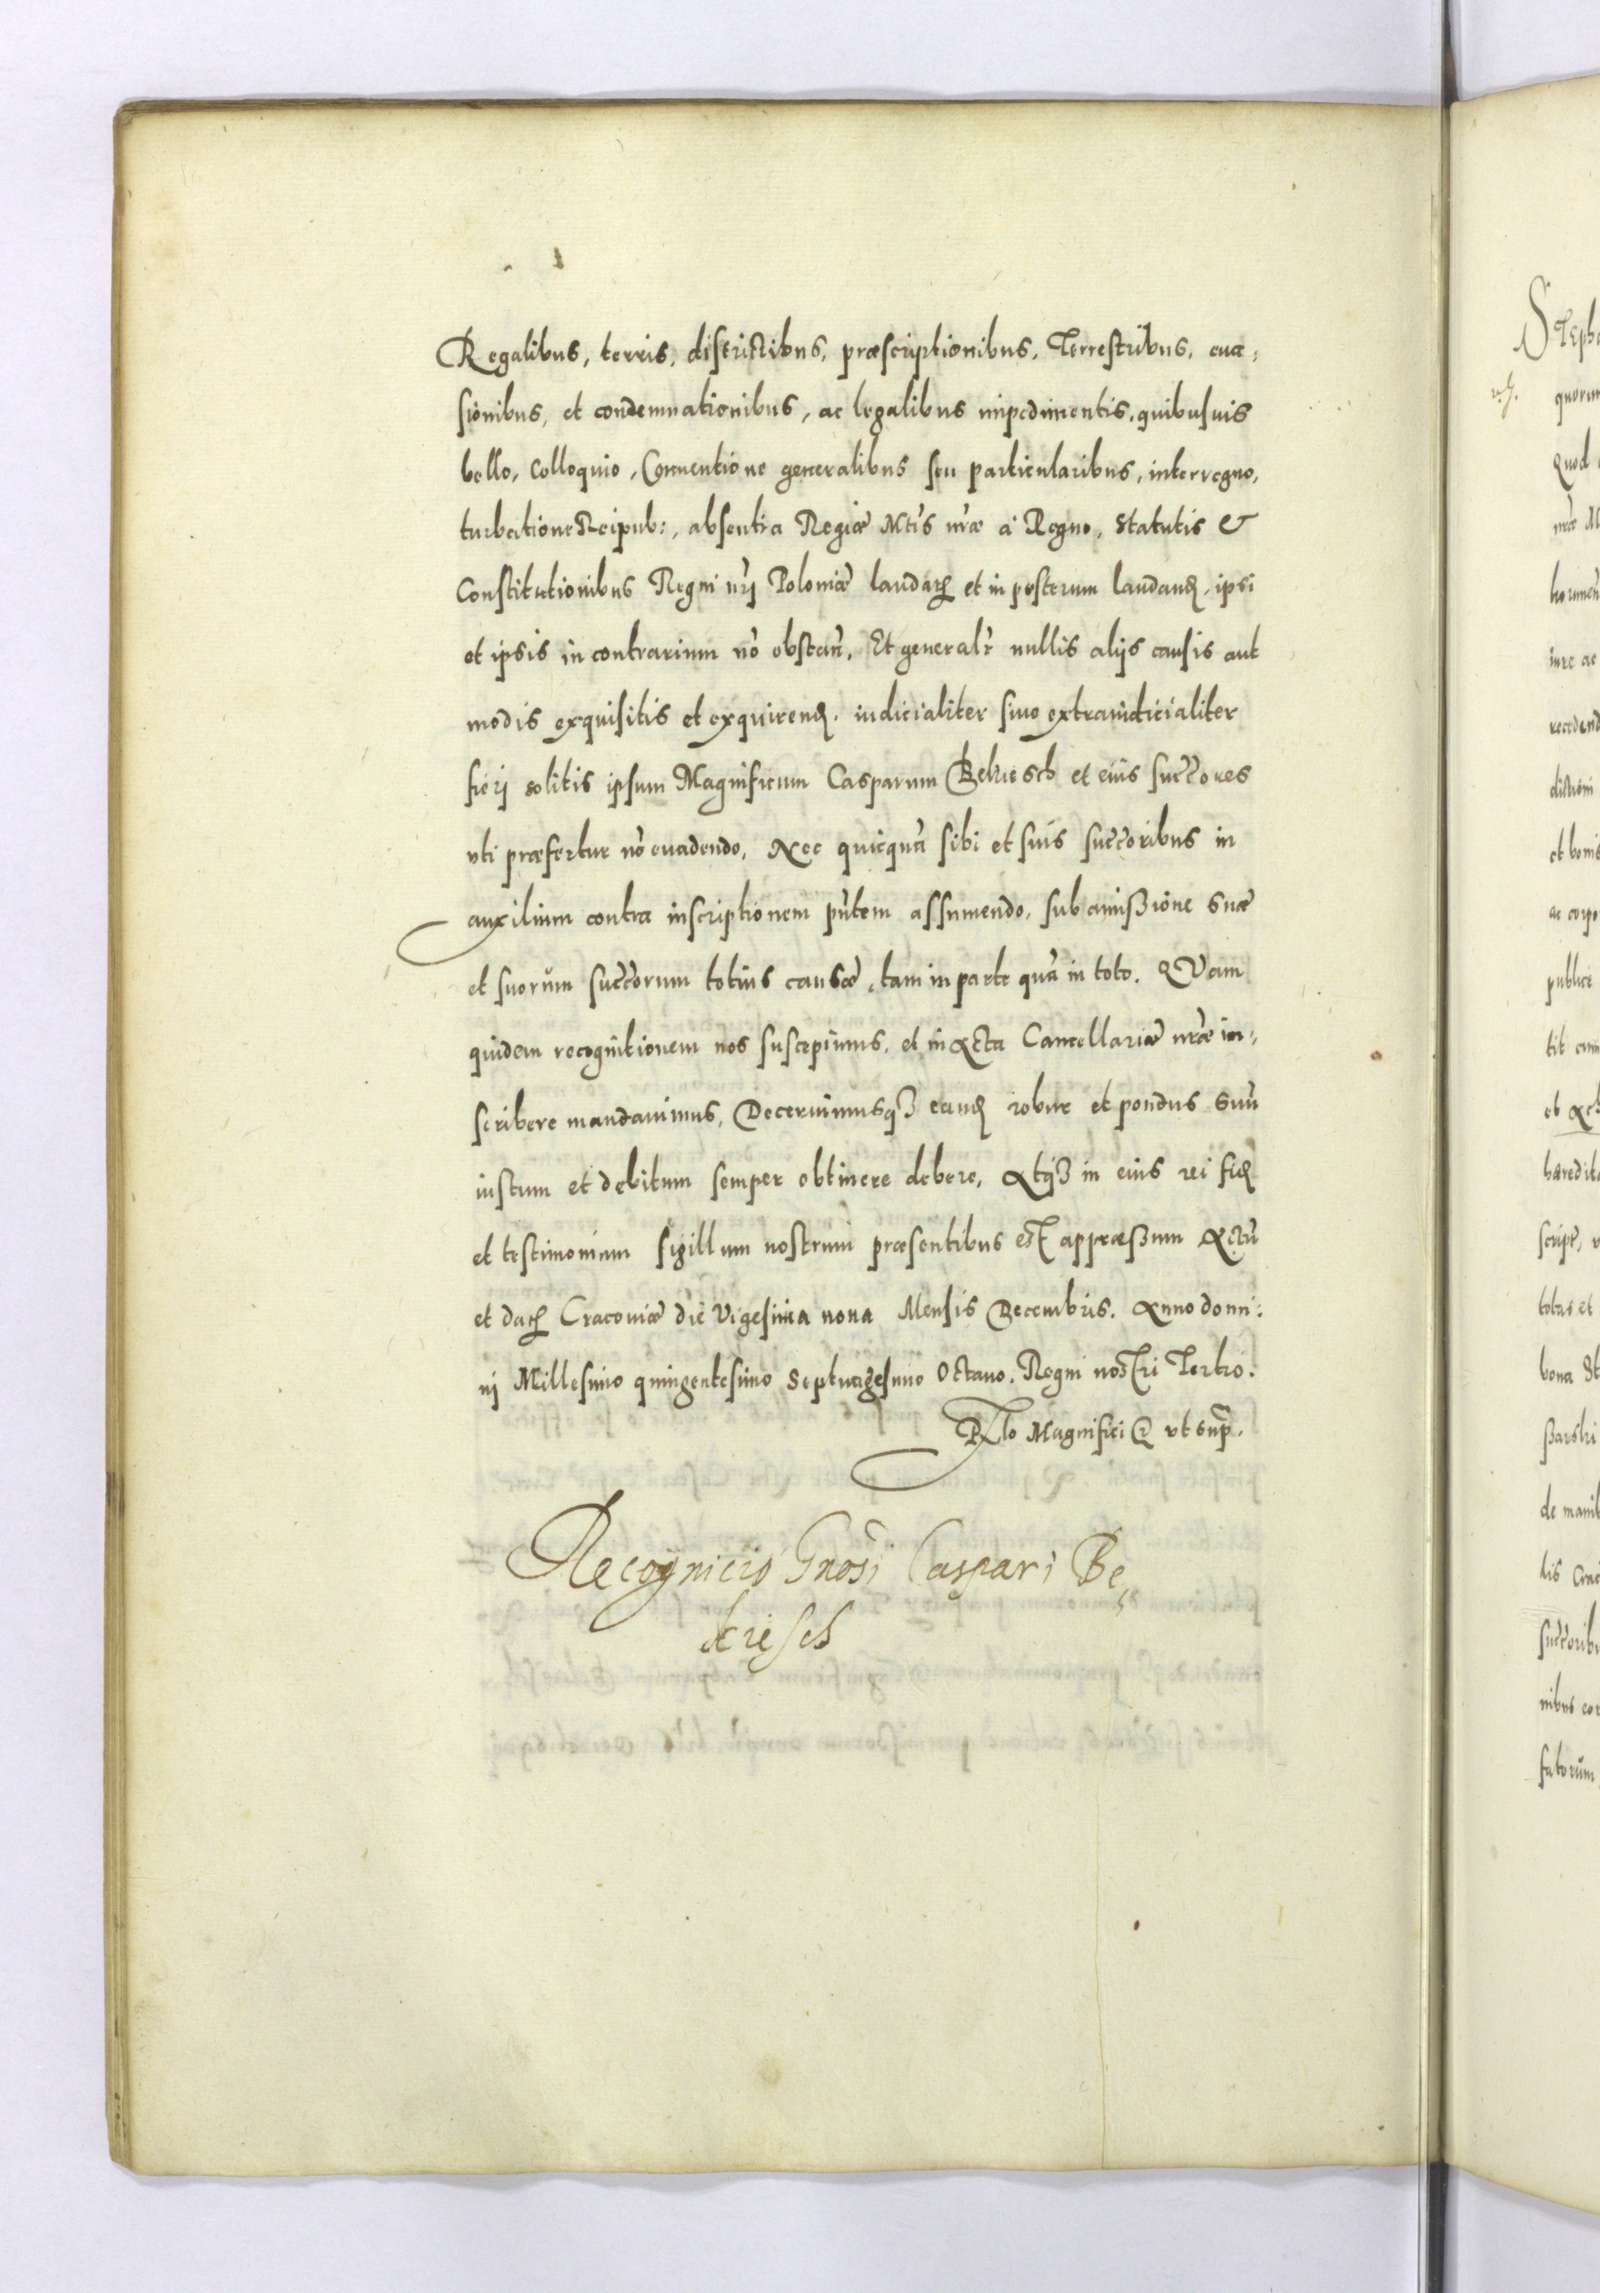 Regalibus, terris, districtibus, præscriptionibus, Terrestribus, eua,
sionibus, et condemnationibus, ac legalibus impedimentis, quibusuis
bello, Colloquio, Conuentione generalibus seu particularibus, interregno,
turbatione Reipub:, absentia Regiæ Mtis nræ à Regno, Statutis &
Constitutionibus Regni nrj Poloniæ laudat et in posterum laudand, ipsi
et ipsis in contrarium nō obstan. Et generalr nullis alijs causis aut
modis exquisitis et exquirend. iudicialiter siue extraiudicialiter
fierj solitis ipsum Magnificum Casparum Bekiesch et eius succores
vti præfertur nō euadendo, Nec quicquā sibi et suis succoribus in
auxilium contra inscriptionem pntem assumendo, sub amißione suæ
et suorum succorum totius causæ, tam in parte quā in toto. QVam
quidem recognitionem nos suscepimus, et in Acta Cancellariæ nræ in,
scribere mandauimus, Decernimusqȝ eand robur et pondus suū
iustum et debitum semper obtinere debere, Atqȝ in eius rei fid
et testimonium sigillum nostrum præsentibus est appræßum Actū
et dat Cracouiæ die Vigesima nona Mensis Decembris. Anno domi:
nj Millesimo quingentesimo Septuagesimo Octauo. Regni nostri Tertio.
Rlo Magnifici & vt supr.
Recognicio Gnosi Caspari Be,
kiesch
Steph
quorum
Quod
nræ M
iure ac
recedend
dictioni
et bonis
ac corpo
publice
tit
ob
hæredita
script,
totus et
bona
ßarski
de manib
lis Crac
succorib
nibus cor
fatorum